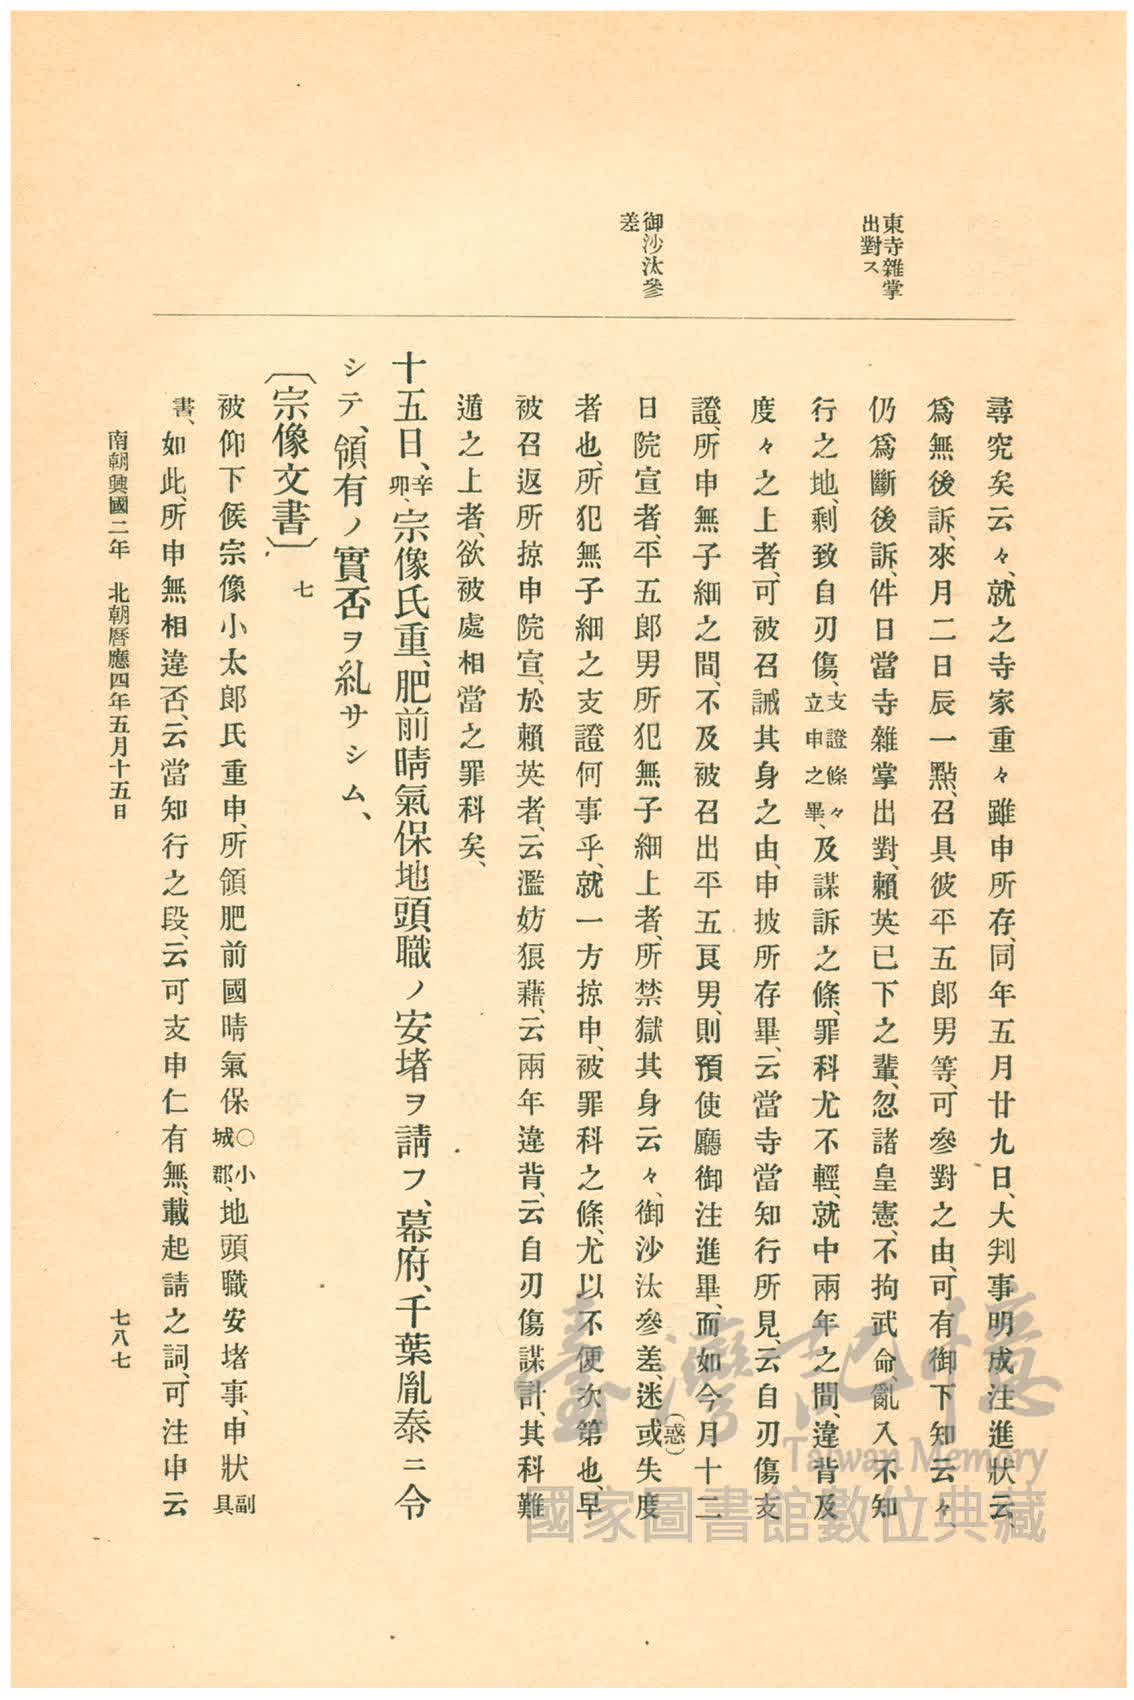 東寺雜掌
出對ス
御沙汰參
差
尋究矣云々、就之寺家重々雖申所存、同年五月廿九日、大判事明成注進狀云、
爲無後訴、來月二日辰一點、召具彼平五郎男等、可參對之由、可有御下知云々、
仍爲斷後訴、件日當寺雜掌出對、賴英已下之輩、忽諸皇憲、不拘武命、亂入不知
行之地、剩致自刃傷、支證條々立申之畢、及謀訴之條、罪科尤不輕、就中兩年之間、違背及
度々之上者、可被召誡其身之由、申披所存畢、云當寺當知行所見、云自刃傷支
證、所申無子細之間、不及被召出平五良男、則預使廳御注進畢、而如今月十二
日院宣者、平五郎男所犯無子細上者、所禁獄其身云々、御沙汰參差、迷或(惑)失度
者也、所犯無子細之支證何事乎、就一方掠申、被罪科之條、尤以不便次第也、早
被召返所掠申院宣、於賴英者、云濫妨狼藉、云兩年違背、云自刃傷謀計、其科難
遁之上者、欲被處相當之罪科矣、
十五日、辛卯、宗像氏重、肥前晴氣保地頭職ノ安堵ヲ請フ、幕府、千葉胤泰ニ令
シテ、領有ノ實否ヲ糺サシム、
〔宗像文書〕七
被仰下候宗像小太郎氏重申、所領肥前國晴氣保○小城郡、地頭職安堵事、申狀副具
書、如此、所申無相違否、云當知行之段、云可支申仁有無、載起請之詞、可注申云
南朝興國二年 北朝曆應四年五月十五日
七八七
臺灣記憶
Taiwan Memory
國家圖書館數位典藏